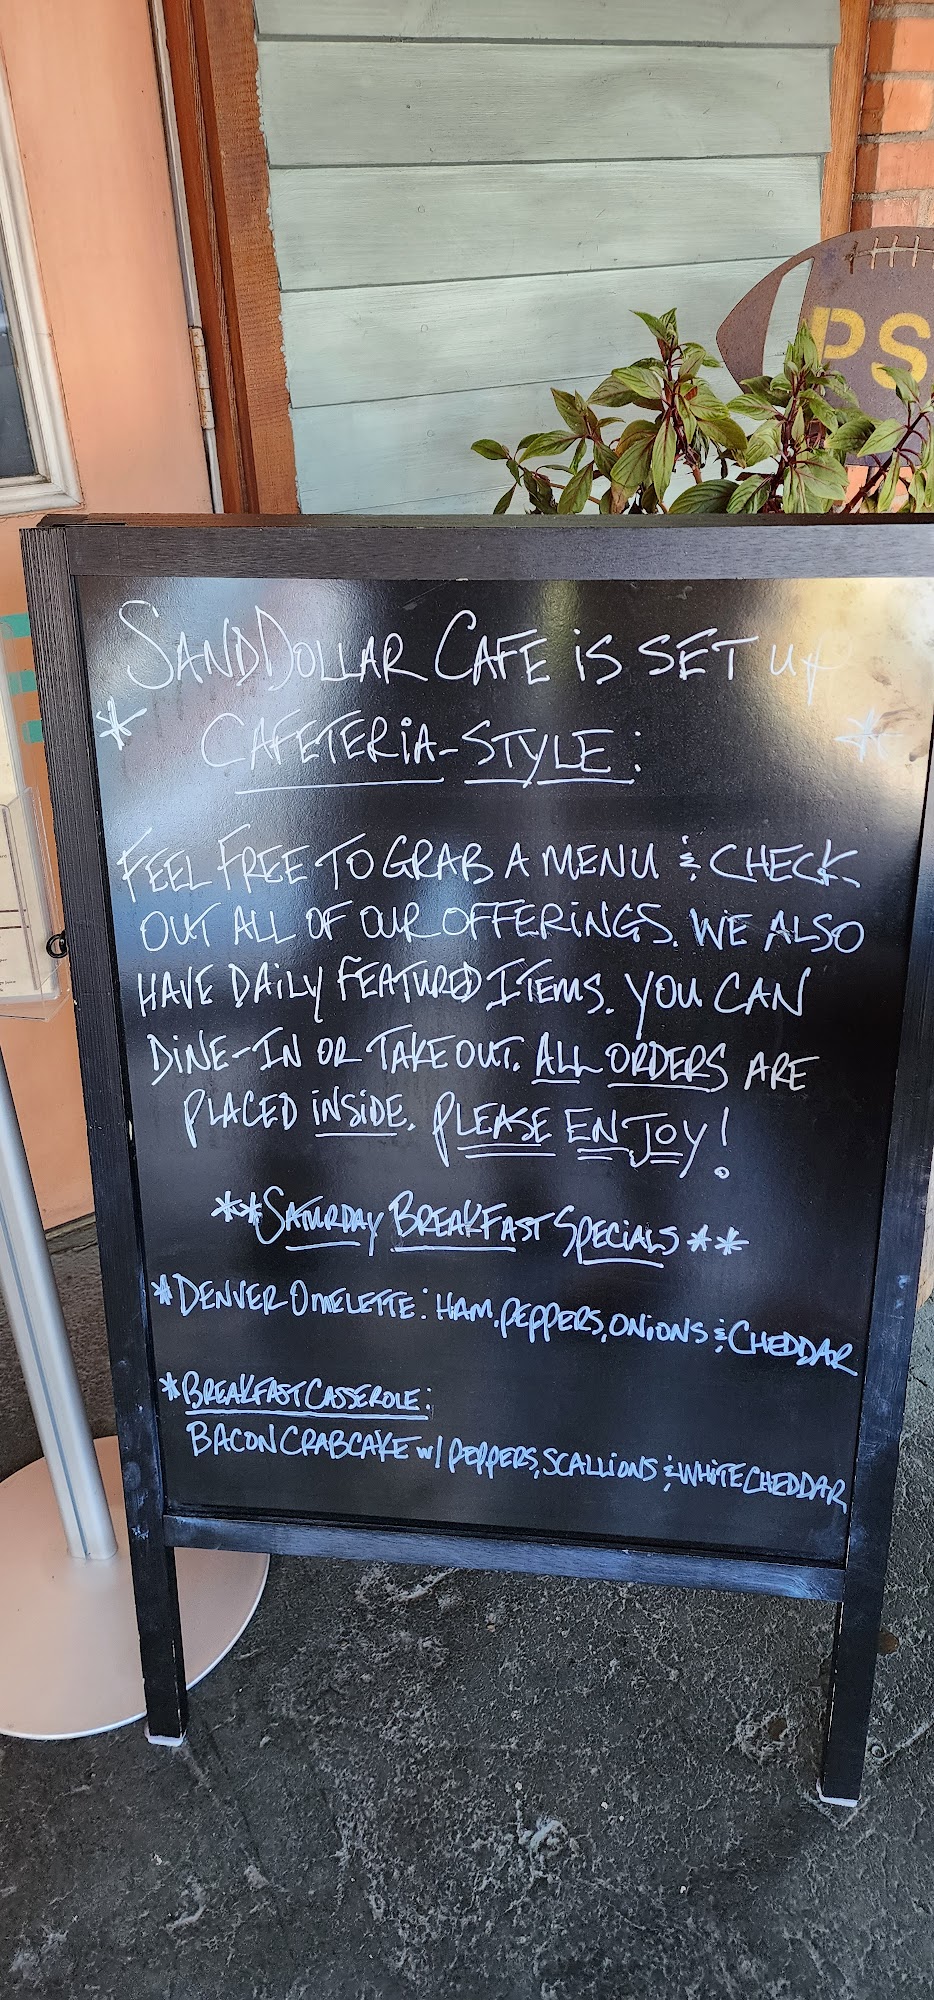 PS
SANDDOLLAR CAFE is SET UP
* CAFETERiA-STYLE: *
FEEL FREE TO GRAB A MENU & CHECK
OUT ALL OF OUR OFFERiNGS. WE ALSO
HAVE DAiLY FEATURED ITEMS. YOU CAN
DiNE-IN OR TAKEOUT. ALL ORDERS ARE
PLACED iNSiDE. PLEASE ENJOY!
**SATURDAY BREAKFAST SPECiALS**
*DENVER OMELETTE: HAM, PEPPERS, ONiONS & CHEDDAR
*BREAKFAST CASSEROLE:
BACON CRABCAKE w/ PEPPERS, SCALLiONS & WHiTE CHEDDAR